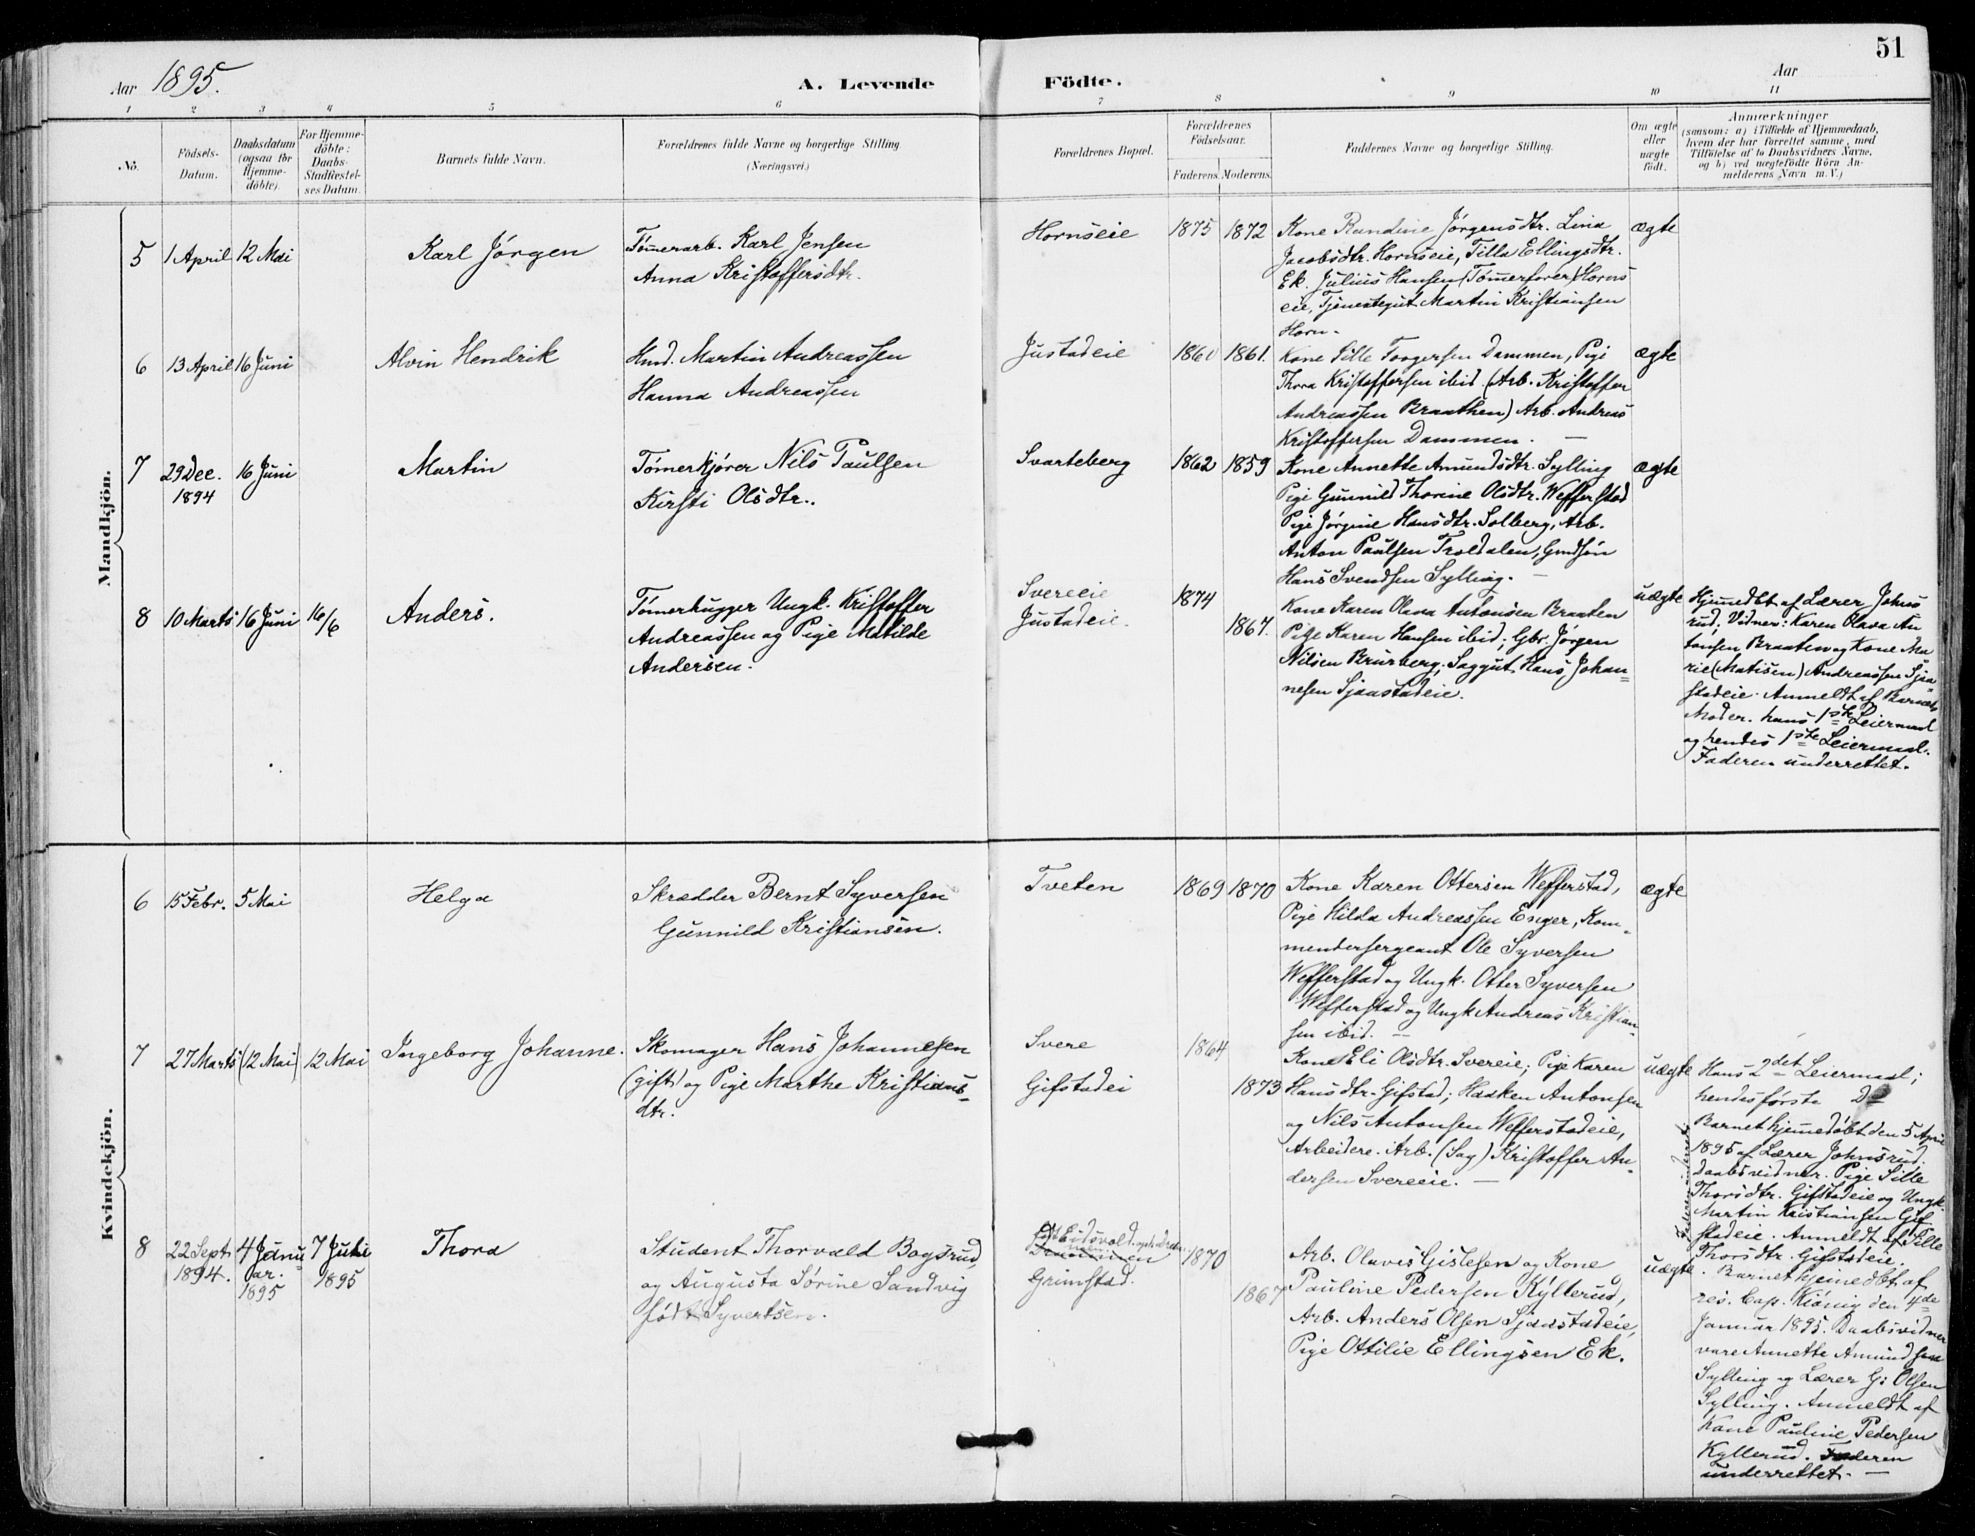 51
Aar 1895.
A. Levende Födte.
Aar
1 2 3 4 5 6 7 8 9 10 11
No.
Födsels-
Datum.
Daabsdatum
(ogsaa for
Hjemme-
döbte).
For Hjemme-
döbte:
Daabs-
Stadfæstel-
ses Datum.
Barnets fulde Navn.
Forældrenes fulde Navne og borgerlige Stilling
(Næringsvei.)
Forældrenes Bopæl.
Forældrenes
Födselsaar.
Faderens. Moderens.
Faddernes Navne og borgerlige Stilling.
Om ægte
eller
uægte
födt.
Anmærkninger
(saasom: a) i Tilfælde af Hjemmedaab,
hvem der har forrettet samme, med
Tilföielse af to Daabsvidners Navne,
og b) ved uægtefödte Börn An-
melderens Navn m. V.)
Mandkjön.
5
1 April
12 Mai
Karl Jörgen
Tømerarb. Karl Jensen
Anna Kristoffersdtr.
Hornseie
1875
1872
Kone Randine Jørgensdtr. Lina
Jacobsdtr. Hornseie, Tilla Ellingsdtr.
Ek. Julius Hansen (Tømerforer) Horns
eie, Tjenestegut Martin Kristiansen
Horn.
ægte
6
13 April
16 Juni
Alvin Hendrik
Hmd. Martin Andreassen
Hanna Andreassen
Justadeie
1861.
Kone Sille Torgersen Dammen, Pige
Thora Kristoffersen ibid. (Arb. Kristoffer
Andreassen Braathen) Arb. Andreas
Kristoffersen Dammen. —
ægte
7
29 Dec.
1894
16 Juni
Martin
Tømerkjører Nils Paulsen
Kirsti Olsdtr.
Svarteberg
1862
1859
Kone Annette Amundsdtr. Sylling
Pige Gunnild Thorine Olsdtr. Wefferstad
Pige Jørgine Hansdtr. Solberg, Arb.
Anton Paulsen Troldalen, Gmdsön
Hans Svendsen Sylling. —
ægte
8
10 Marts
16 Juni
16/6
Anders.
Tømerhugger Ungk. Kristoffer
Andreassen og Pige Matilde
Andersen.
Svereeie
Justadeie.
1874
1867.
Kone Karen Olava Antonsen Braaten
Pige Karen Hansen ibid; Gbr. Jørgen
Nilsen Brurberg; Saggut Hans Johan=
nesen Sjaastadeie.
uægte
Hjemdbt af Lærer Johns
rud. Vidner: Karen Olava An
tonsen Braaten og Kone Ma
rie (Matisen) Andreassen Sjaa
stadeie. Anmeldt af Barnets
Moder. hans 1ste Leiermaal
og hendes 1ste Leiermaal.
Faderen underrettet.
Kvindekjön.
6
15 Febr.
5 Mai
Helga
Skrædder Bernt Syversen
Gunnild Kristiansen.
Tveten
1869
1870
Kone Karen Ottersen Wefferstad,
Pige Hilda Andreassen Enger, Kom-
mandersergeant Ole Syversen
Wefferstad og Ungk. Otter Syversen
Wefferstad og Ungk Andreas Kristian-
sen ibid. —
ægte
7
27 Marts
(12 Mai)
12 Mai
Ingeborg Johanne.
Skomager Hans Johannesen
(gift) og Pige Marthe Kristians-
dtr.
Svere
Gifstadei
1864
1873
Kone Eli Olsdtr. Svereie; Pige Karen
Hansdtr. Gifstad; Haaken Antonsen
og Nils Antonsen Wefferstadeie,
Arbeidere. Arb. (Sag) Kristoffer An-
dersen Svereeie. —
uægte
Hans 2det Leiermaal;
hendes første Do
Barnet hjemedöbt den 5 April
1895 af Lærer Johnsrud.
Daabsvidner. Pige Sille
Thorsdtr. Gifstadeie og Ungk.
Martin Kristiansen Gif
stadeie. Anmeldt af Sille
Thorsdtr. Gifstadeie.
8
22 Sept
1894.
4 Janu
ar.
1895
7 Juli
1895
Thora
Student Thorvald Bogsrud
og Augusta Sörine Sandvig
født Syvertsen.
Eidsvold
Grimstad.
1870
1867
Arb. Olaves Gislesen og Kone
Pauline Pedersen Kylterud,
Arb. Anders Olsen Sjaastadeie,
Pige Ottilie Ellingsen Ek.
uægte
Barnet hjemedbt af
res. Cap. Kiönig den 4de
Januar 1895. Daabsvidner
vare Annette Amundsen
Sylling og Lærer G: Olsen
Sylling. Anmeldt af
Kone Pauline Pedersen
Kyllerud. Faderen
underrettet. —